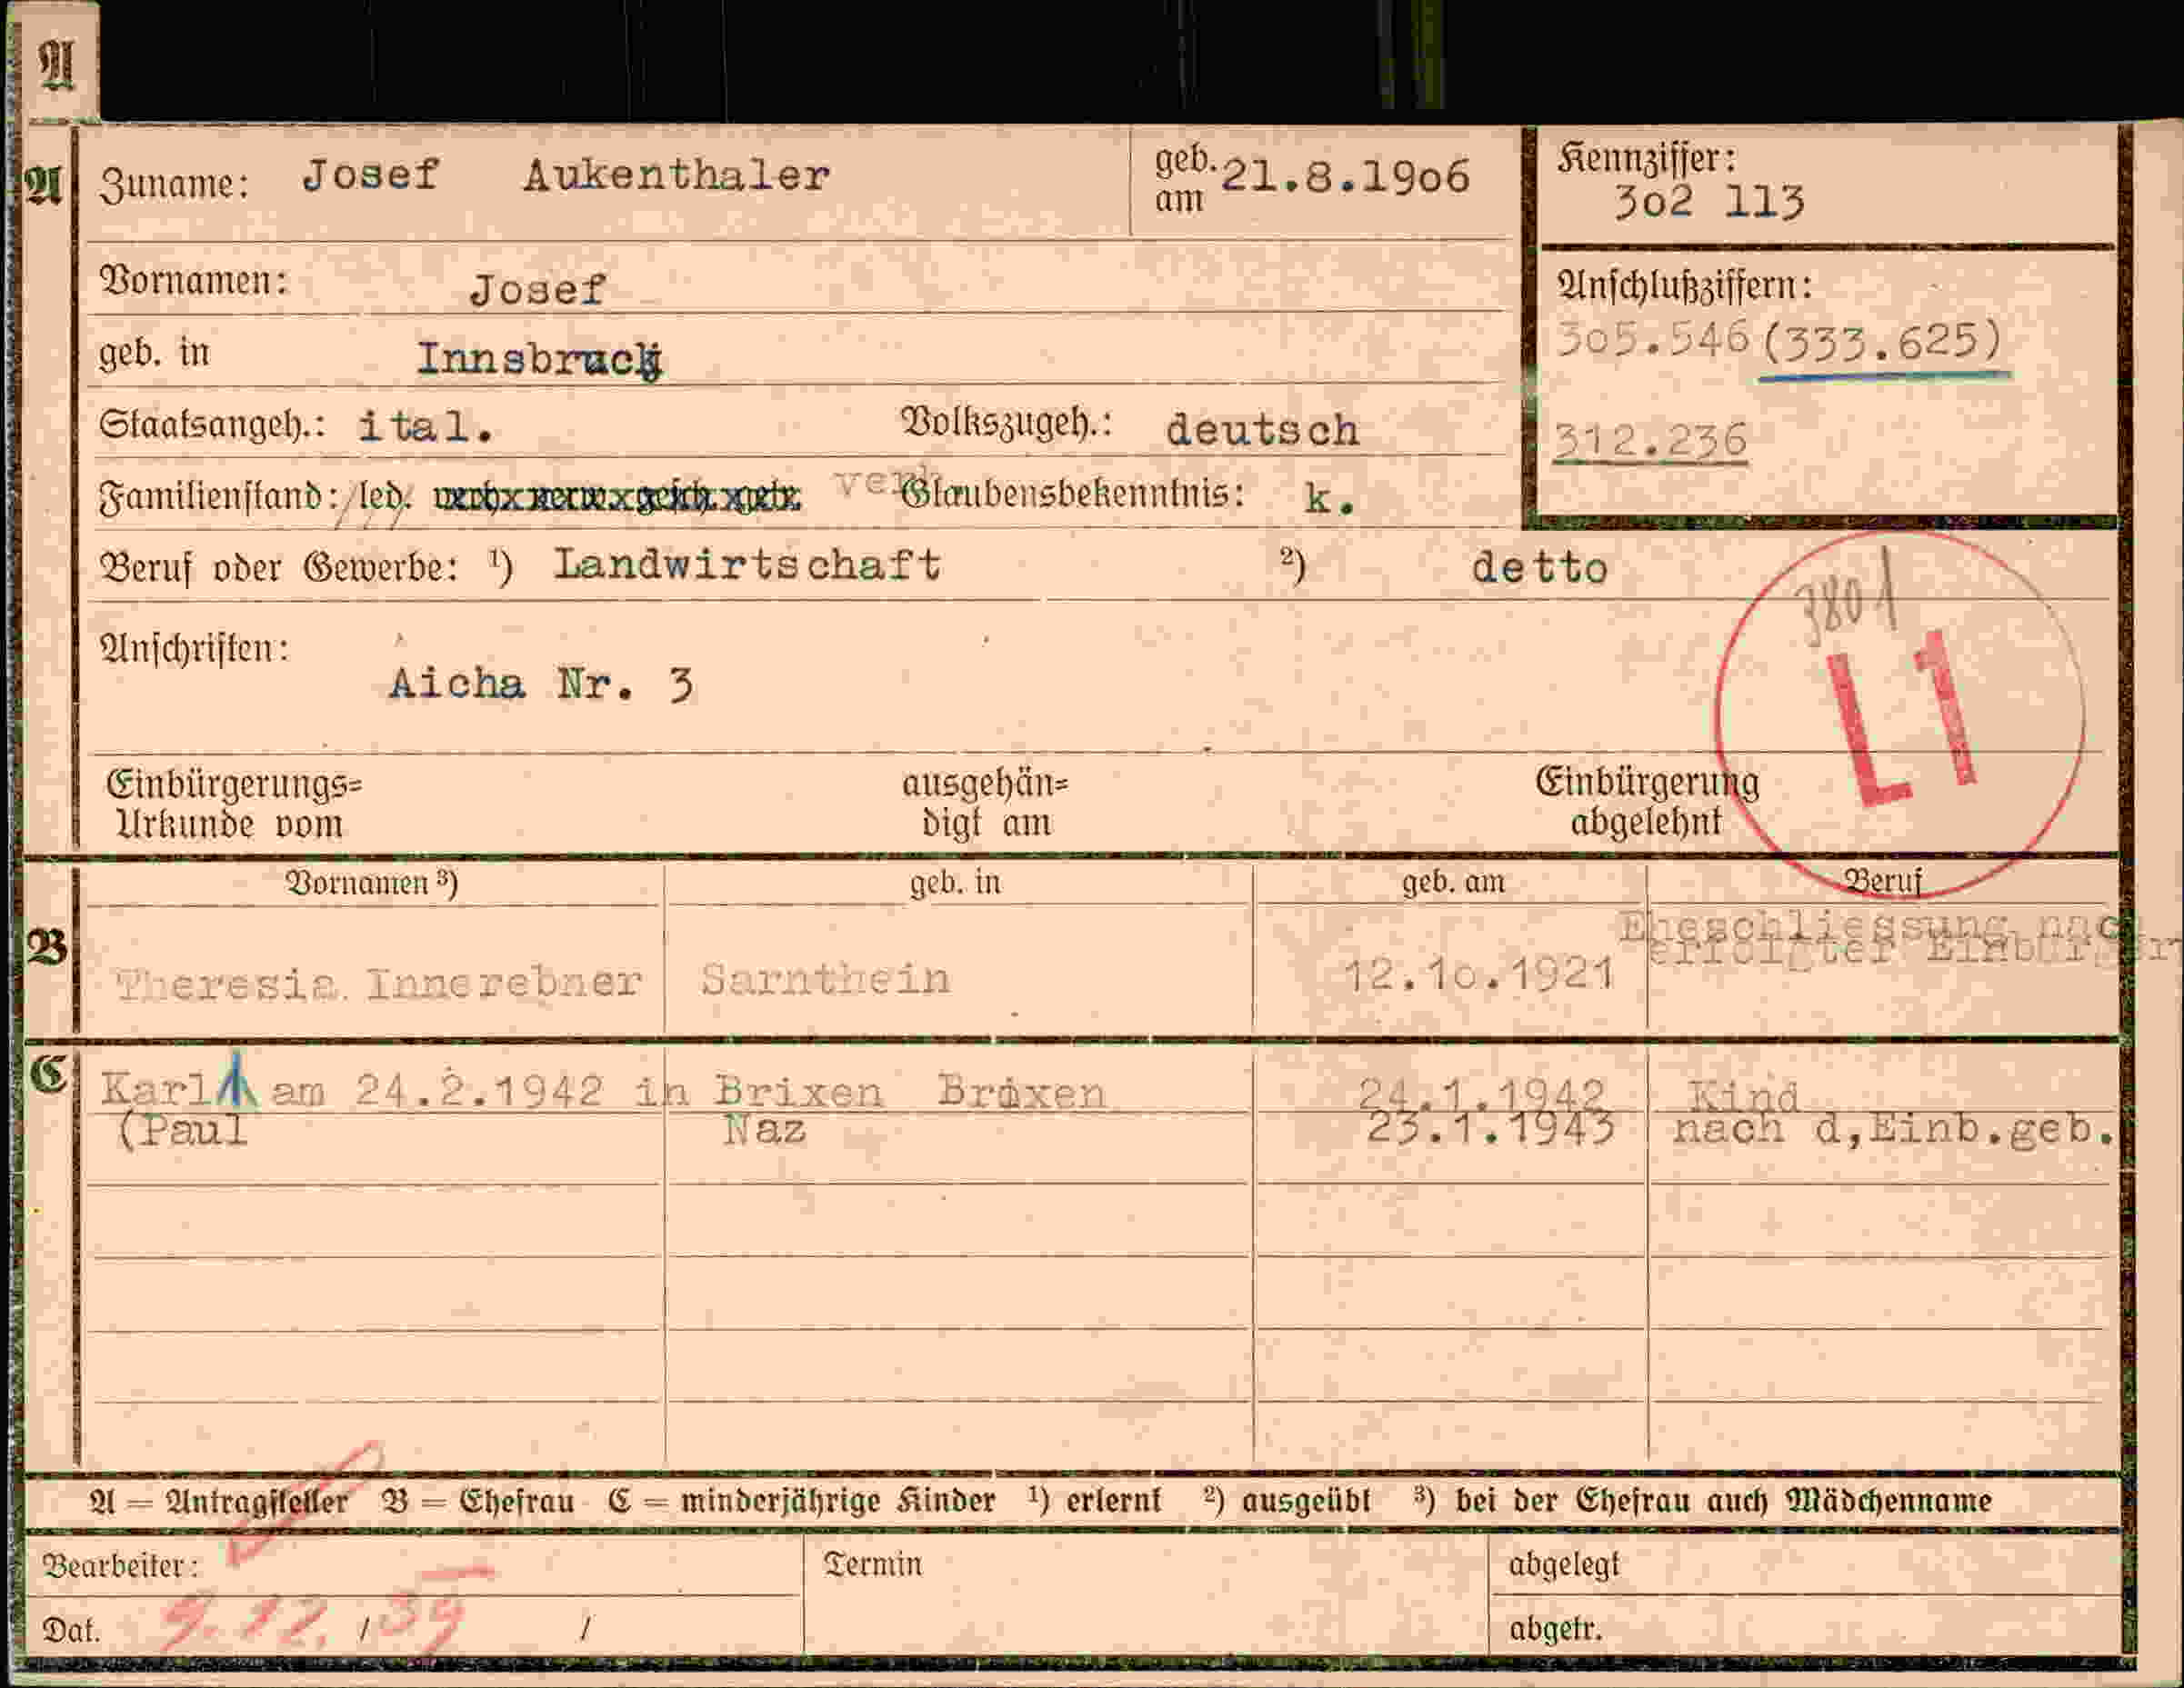 A
A Zuname: Josef Aukenthaler geb. am 21.8.1906 Kennziffer: 302 113
Vornamen: Josef
Anschlußziffern:
305.546 (333.625)
geb. in Innsbruck
Staatsangeh.: ital. Volkszugeh.: deutsch
312.236
Familienstand: led. verh. Glaubensbekenntnis: k.
Beruf oder Gewerbe: ¹) Landwirtschaft ²) detto
3801
L1
Anschriften:
Aicha Nr. 3
Einbürgerungs= ausgehän= Einbürgerung
Urkunde vom digt am abgelehnt
Vornamen ³) geb. in geb. am Beruf
B
Eheschliessung nach
erfolgter
Theresia Innerebner Sarnthein 12.10.1921
C Karl am 24.2.1942 in Brixen Brixen 24.1.1942 Kind
(Paul Naz 23.1.1943 nach d,Einb.geb.
A = Antragsteller B = Ehefrau C = minderjährige Kinder ¹) erlernt ²) ausgeübt ³) bei der Ehefrau auch Mädchenname
Bearbeiter: Termin abgelegt
Dat. 9.12. / 39 / abgetr.